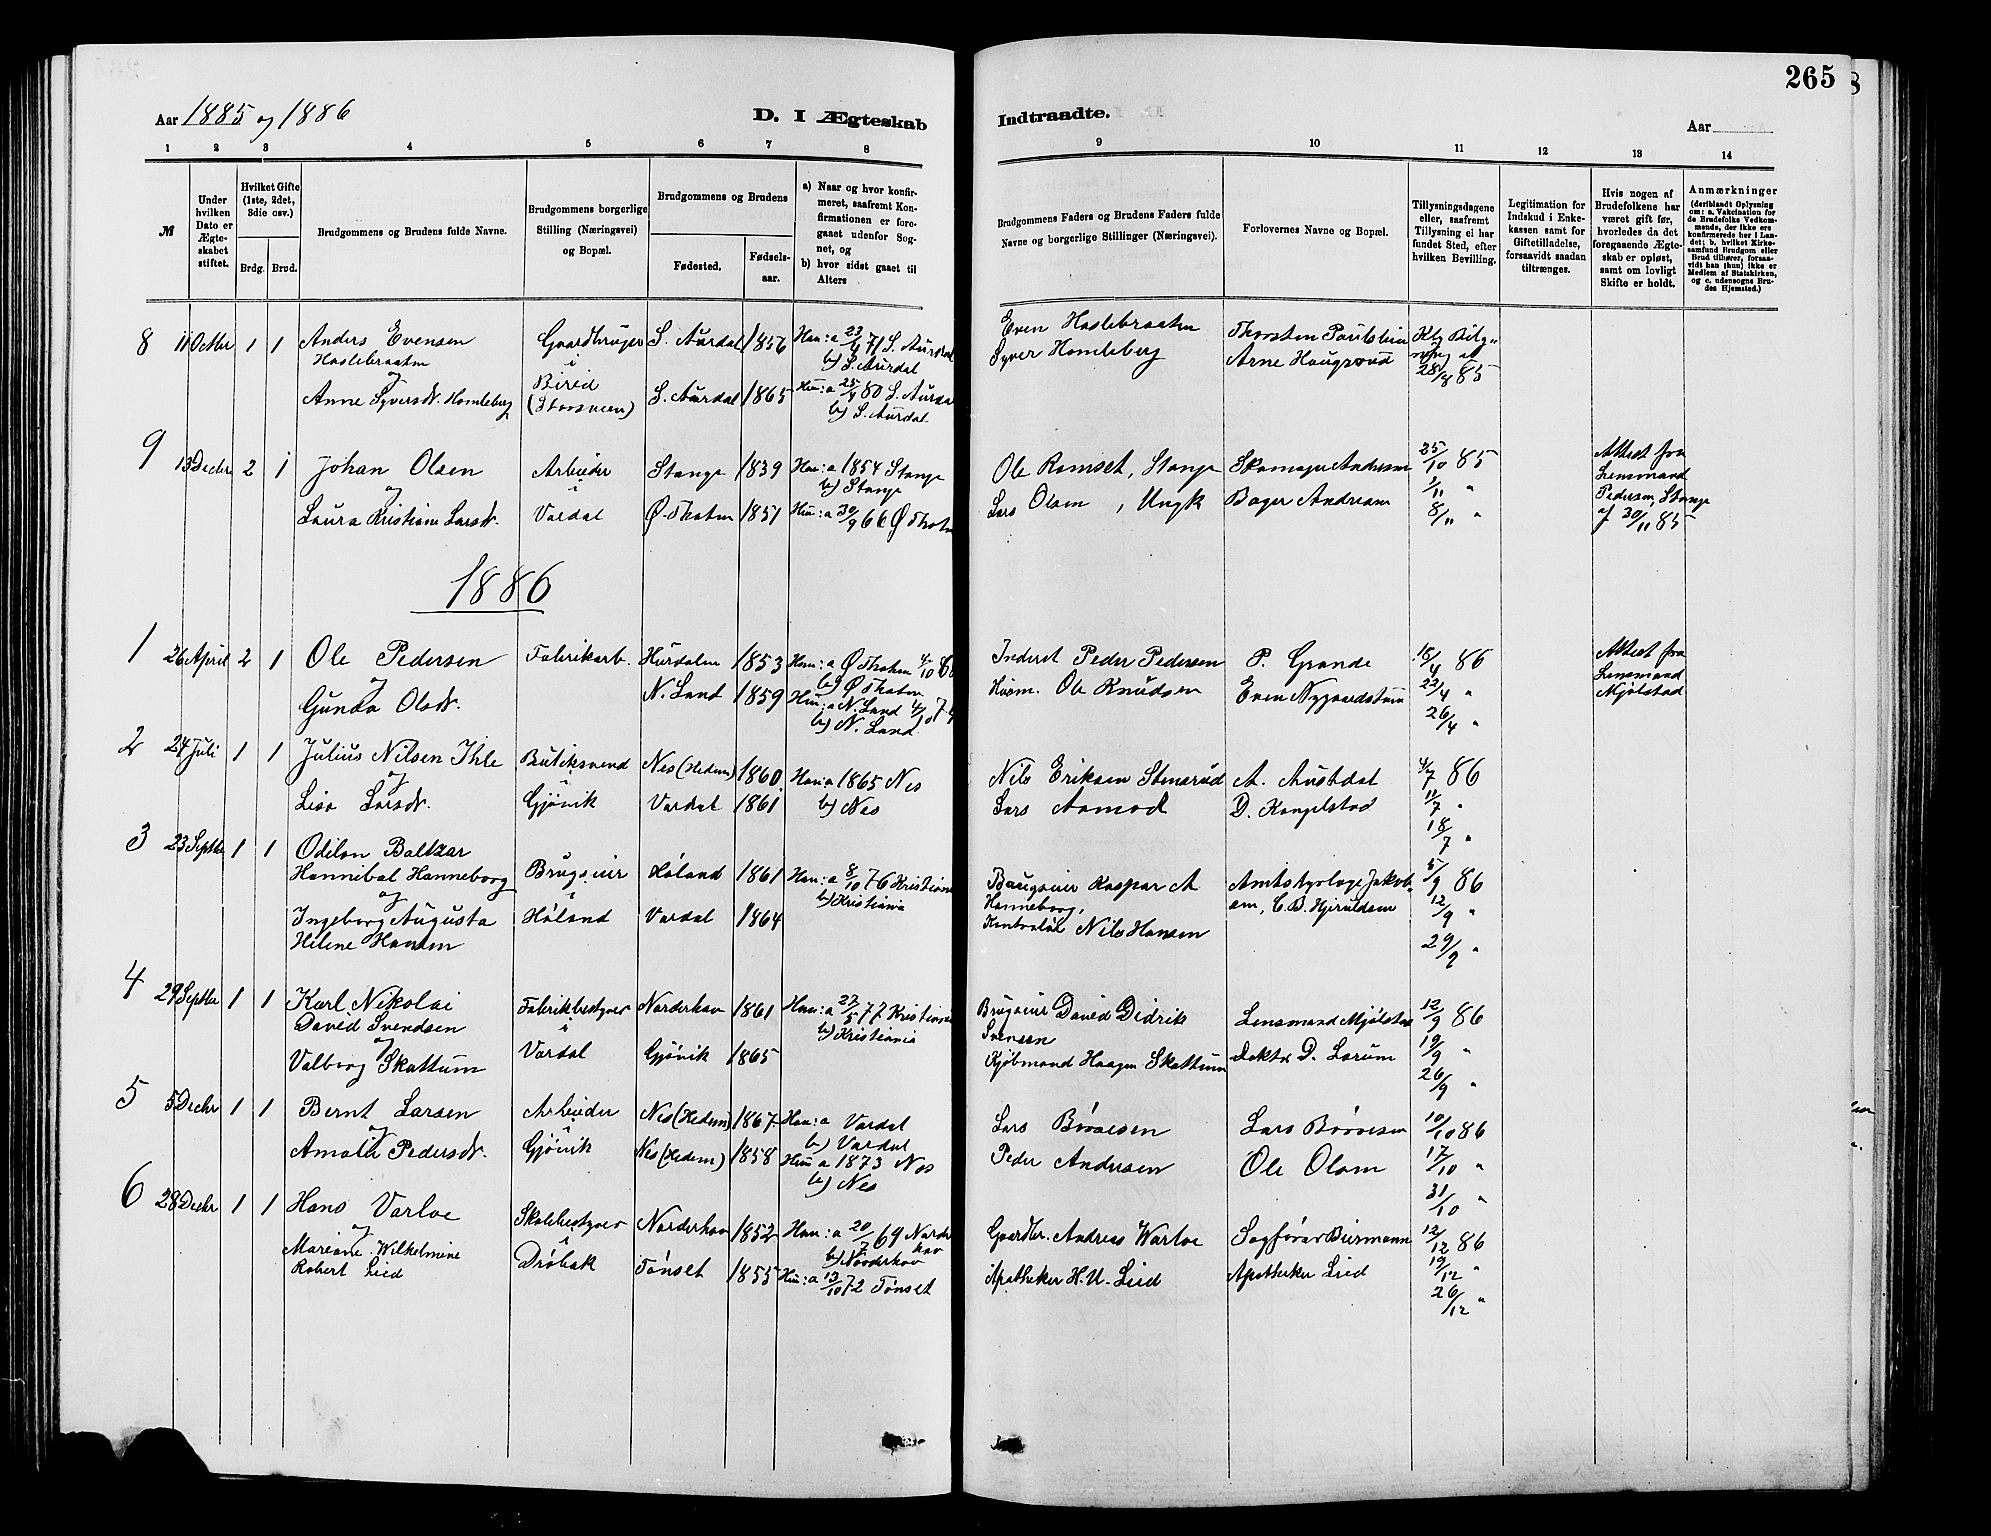 265
Aar 1885 og 1886
D. I Ægteskab
Indtraadte.
Aar
1 2 3 4 5 6 7 8
9 10 11 12 13 14
№
Under hvilken Dato er Ægteskabet stiftet.
Hvilket Gifte (1ste, 2det, 3die osv.)
Brdg. Brud.
Brudgommens og Brudens fulde Navne.
Brudgommens borgerlige Stilling (Næringsvei) og Bopæl.
Brudgommens og Brudens
Fødested.
Fødselsaar.
a) Naar og hvor konfirmeret, saafremt Konfirmationen er foregaaet udenfor Sognet, og
b) hvor sidst gaaet til Alters
Brudgommens Faders og Brudens Faders fulde Navne og borgerlige Stillinger (Næringsvei).
Forlovernes Navne og Bopæl.
Tillysningsdagene eller, saafremt Tillysning ei har fundet Sted, efter hvilken Bevilling.
Legitimation for Indskud i Enkekassen samt for Giftetilladelse, forsaavidt saadan tiltrænges.
Hvis nogen af Brudefolkene har været gift før, hvorledes da det foregaaende Ægteskab er opløst, samt om lovligt Skifte er holdt.
Anmærkninger (deriblandt Oplysning om: a. Vakcination for de Brudefolks Vedkommende, der ikke ere konfirmerede her i Landet; b. hvilket Kirkesamfund Brudgom eller Brud tilhører, forsaavidt han (hun) ikke er Medlem af Statskirken, og c. udensogns Brudes Hjemsted.)
8 11 Octbr 1 1 Anders Evensen Gaardbruger S. Aurdal 1856 Han: a 23/4 71 S. Aurdal
Haslebraaten i b) S. Aurdal
og Birid
Anne Syversdr. Homleberg S. Aurdal 1865 Hun: a 25/4 80 S. Aurdal
b) S. Aurdal
Even Haslebraaten Thorsten Paulslein
Syver Homleberg Arne Haugsrud
28/8 85
9 13 Decbr 2 1 Johan Olsen Arbeider Stange 1839 Han: a 1854 Stange
og i b) Stange
Laura Kristiane Larsdr. Vardal Ø. Thoten 1851 Hun: a 30/9 66 Ø Thoten
Ole Ramset, Stange Skomager Andersen 25/10 85
Lars Olsen, Ungk Bager Andersen 1/11 "
8/11 "
Attest fra
Lensmand
Pedersen, Stange
af 30/11 85
1886
1 26 April 2 1 Ole Pedersen Fabrikarb. Hurdalen 1853 Han: a Ø Thoten 4/10 68
og b) Ø Thoten
Gunda Olsdr. N. Land 1859 Hun: a N. Land
b) N. Land
Inderst Peder Pedersen P. Grande 18/4 86
Husm. Ole Knudsen Even Nygaardstuen 22/4 "
26/4 "
Attest fra
Lensmand
Mjølstad
2 24 Juli 1 1 Julius Nilsen Ihle Butiksvend Nes (Hedem) 1860 Han: a 1865 Nes
og i b) Nes
Lisa Larsdr. Gjøvik Vardal 1861
Nils Eriksen Stensrud A. Austdal 4/7 86
Lars Aamod D. Kangelstad 11/7 "
18/7 "
3 23 Septbr 1 1 Odilon Baltzar
Hannibal Hanneborg Brugseier Høland 1861 Han: a 8/10 76 Kristiania
og i b) Kristiania
Ingeborg Augusta Høland Vardal 1864
Helene Hansen
Brugseier Kaspar A Amtsdyrlæge Jakob- 5/9 86
Hanneborg, sen, C. B. Hjeruldsen 12/9 "
Kontrolør Nils Hansen 29/9 "
4 29 Septbr 1 1 Karl Nikolai Fabrikbestyrer Norderhov 1861 Han: a 27/5 77 Kristiania
David Svendsen i b) Kristiania
og
Valborg Skattum Vardal Gjøvik 1865
Brugseier David Didrik Lensmand Mjølstad 12/9 86
Svensen 19/9 "
Kjøbmand Haagen Skattum Doktor D. Larum 26/9 "
5 5 Decbr 1 1 Bernt Larsen Arbeider Nes (Hedem) 1867 Han: a Vardal
og i b) Vardal
Amalie Pedersdr. Gjøvik Nes (Hedem) 1858 Hun a 1873 Nes
b) Nes
Lars Børresen Lars Børresen 10/10 86
Peder Andersen Ole Olsen 17/10 "
31/10 "
6 28 Decbr 1 1 Hans Varloe Skolebestyrer Norderhov 1852 Han: a 20/7 69 Norderhov
og i b) Norderhov
Mariane Wilhelmine Drøbak Tønset 1855 Hun: a 13/10 72 Tønset
Robert Lied
Gaardbr. Andreas Warloe Sagfører Biermann 12/12 86
Apotheker H. U. Lied Apotheker Lied 19/12 "
26/12 "